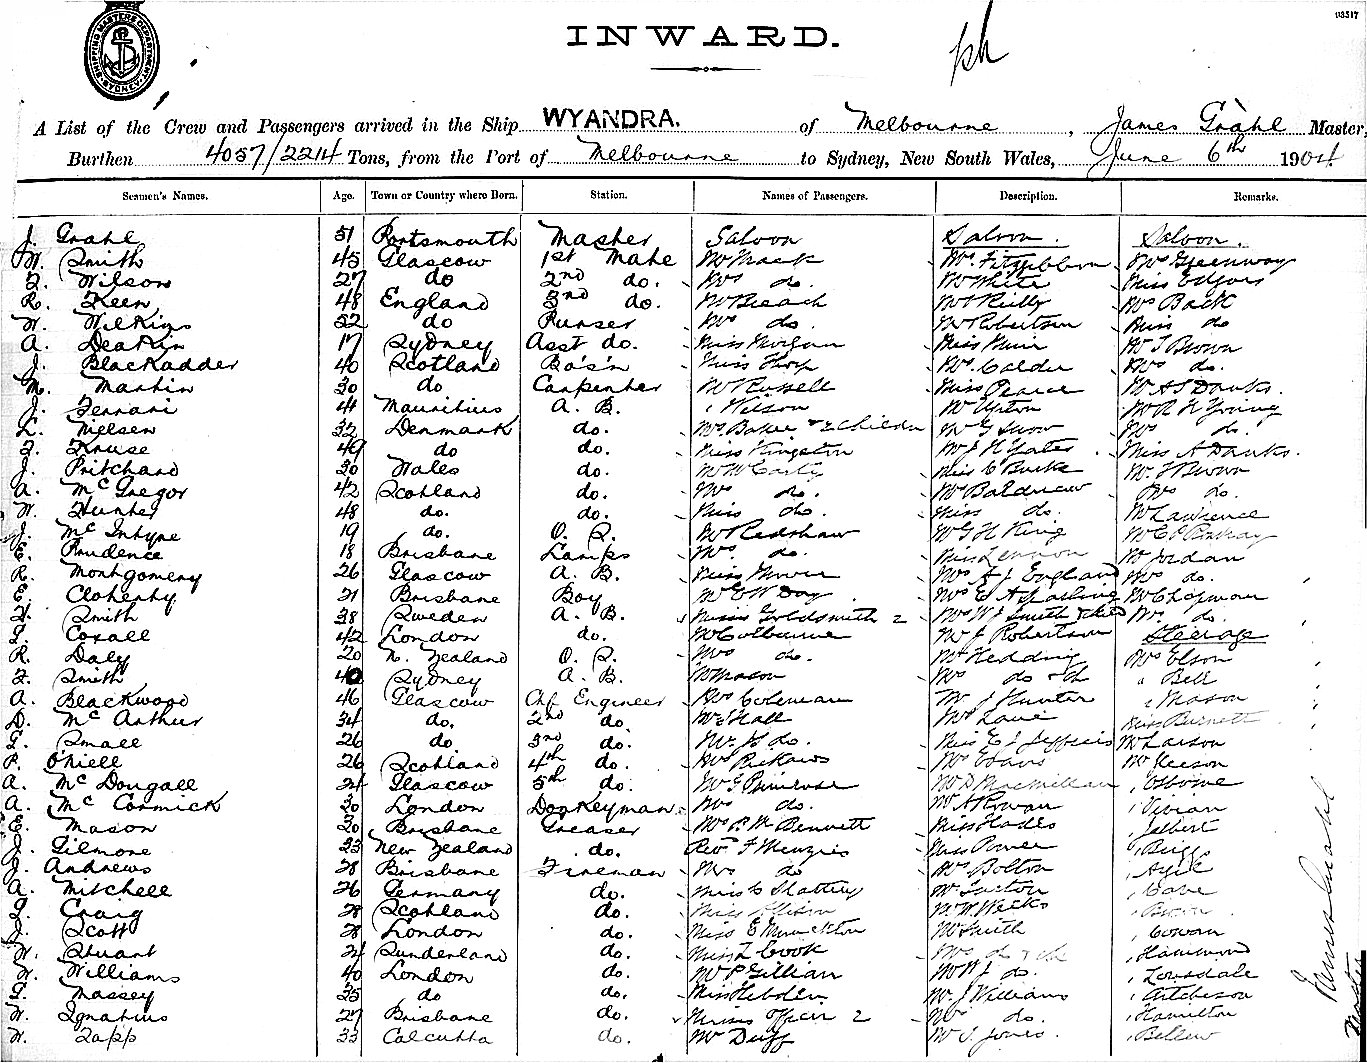 03517
SHIPPING MASTERS DEPARTMENT SYDNEY
INWARD.
A List of the Crew and Passengers arrived in the Ship WYANDRA. of Melbourne, James Grahl Master,
Burthen 4057/2214 Tons, from the Port of Melbourne to Sydney, New South Wales, June 6th 1904
Seamen's Names. Age. Town or Country where Born. Station. Names of Passengers. Description. Remarks.
J. Grahl 51 Portsmouth Master Saloon Saloon. Saloon.
W. Smith 45 Glascow 1st Mate Mr Mack Mrs Fitzgibbon Mrs Greenway
F. Wilson 27 do 2nd do. Mrs do. Mr White Miss Edgars
R. Keen 48 England 3rd do. Mr Beach Mr Reilly Mrs Back
W. Wilkins 52 do Purser Mrs do. Mr Robertson Miss do
A. Deakin 17 Sydney Asst do. Miss Morgan Miss Muir Mr J Brown
J. Blackadder 40 Scotland Bo's'n Miss Thorp Mr. Calder Mrs do.
M. Martin 30 do Carpenter Mr Russell Miss Pearce Mr A S Danks.
J. Ferrari 41 Mauritius A. B. " Wilson Mr Upton Mr R H Young
L. Nielsen 32 Denmark do. Mrs Baker & 2 Childn Mr G Snow Mrs do.
F. Kruse 49 do do. Miss Kingston Mr J H Yates Miss A Danks.
J. Pritchard 30 Wales do. Mr McCarty Miss C Burke Mr F Brown
A. McGregor 42 Scotland do. Mrs do. Mrs do.
W. Hunter 48 do. do. Miss do. Miss do. Mr Lawrence
J. McIntyre 19 do. O. S. Mr Redshaw Mr G H King
E. Prudence 18 Brisbane Lamps Mrs do. Miss Lennon Mr Jordan
R. Montgomery 26 Glascow A. B. Mrs A J England Mrs do.
E. Cloherty 21 Brisbane Boy Mr E W Day Mr Chapman
H. Smith 38 Sweden A. B. Misses Goldsmith 2 Mrs W J Smith & chd Mrs. do.
G. Coxall 42 London do. Mr Colbourne Mr J Robertson Steerage
R. Daly 20 N. Zealand O. S. Mrs do. Mr Hedding Mrs Elson
F. Smith 40 Sydney A. B. Mr Mason Mrs do " Bell
A. Blackwood 46 Glascow Chf Engineer Mrs Coleman Mr J Hunter " Mason
D. McArthur 34 do. 2nd do Mr J Hall Miss Burnett
G. Small 26 do 3rd do. do. Miss E J Jefferis Mr Larson
P. O'Niell 26 Scotland 4th do. Mrs Evans Mr Gleeson
A. McDougall 24 Glascow 5th do. Mr G Primrose Mr D Macmillan " Osborne
A. McCormick 30 London Donkeyman Mrs do. Mr A Rowan " Vivian
E. Mason 20 Brisbane Greaser Mrs P. M Bennett " Jalbert
J. Gilmore 23 New Zealand do. Rev F Menzies Miss Power " Briggs
J. Andrews 28 Brisbane Fireman Mrs do Mrs Bolton
A. Mitchell 26 Germany do. Miss C Slattery " Cave
G. Craig 28 Scotland do. Miss Allison Mr W Weeks " Brown
J. Scott 28 London do. Mr Smith " Cowan
W. Stuart 24 Sunderland do. Miss L Cook " Hammond
W. Williams 40 London do. Mr P Gillian Mr W J do. " Lonsdale
G. Massey 25 do do. Miss Hebden Mr. J Williams " Aitchison
W. Ignatius 27 Brisbane do. 2 Mrs do. " Hamilton
W. Zapp 33 Calcutta do. Mr Duff Mr S. Jones. " Bellew
James Grahl
Master